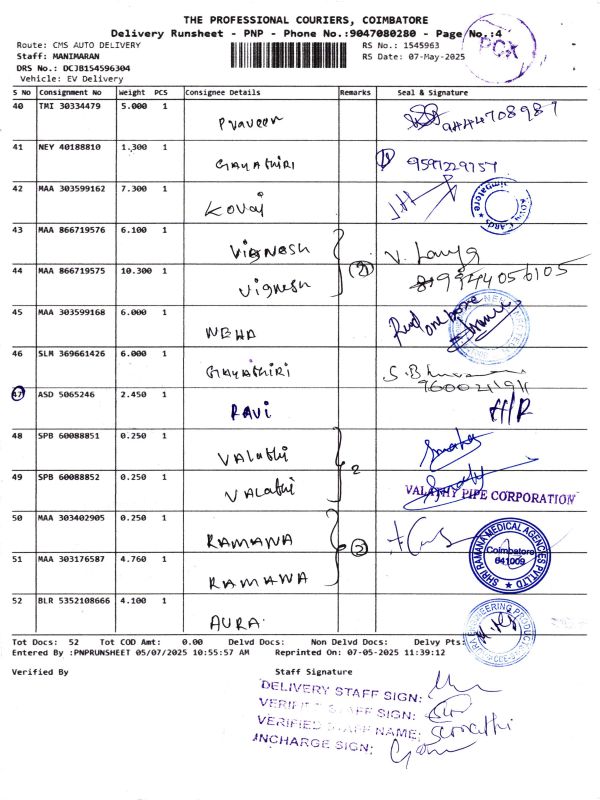 THE PROFESSIONAL COURIERS, COIMBATORE
Delivery Runsheet - PNP - Phone No.:9047080280 - Page No.:4
Route: CMS AUTO DELIVERY RS No.: 1545963
Staff: MANIMARAN RS Date: 07-May-2025
DRS No.: DCJB1545596304
Vehicle: EV Delivery
PCX
S No Consignment No Weight PCS Consignee Details Remarks Seal & Signature
40 TMI 30334479 5.000 1 Praveen 9444708987
41 NEY 40188810 1.300 1 GAYAThIRI 9597229757
42 MAA 303599162 7.300 1 Kovai
43 MAA 866719576 6.100 1 VIGNESH
44 MAA 866719575 10.300 1 VIGNESH 9944056105
45 MAA 303599168 6.000 1 NEHA
46 SLM 369661426 6.000 1 GAYAThIRI 9600211911
47 ASD 5065246 2.450 1 RAVI H/R
48 SPB 60088851 0.250 1 VALathi
2
49 SPB 60088852 0.250 1 VALathi
VALATHY PIPE CORPORATION
50 MAA 303402905 0.250 1 RAMANA
SHRI RAMANA MEDICAL AGENCIES PVT LTD
Coimbatore
641009
51 MAA 303176587 4.760 1 RAMANA
52 BLR 5352108666 4.100 1 AURA
Tot Docs: 52 Tot COD Amt: 0.00 Delvd Docs: Non Delvd Docs: Delvy Pts:
Entered By :PNPRUNSHEET 05/07/2025 10:55:57 AM Reprinted On: 07-05-2025 11:39:12
Verified By Staff Signature
DELIVERY STAFF SIGN:
VERIFIED STAFF SIGN:
VERIFIED STAFF NAME: Sumathi
INCHARGE SIGN: